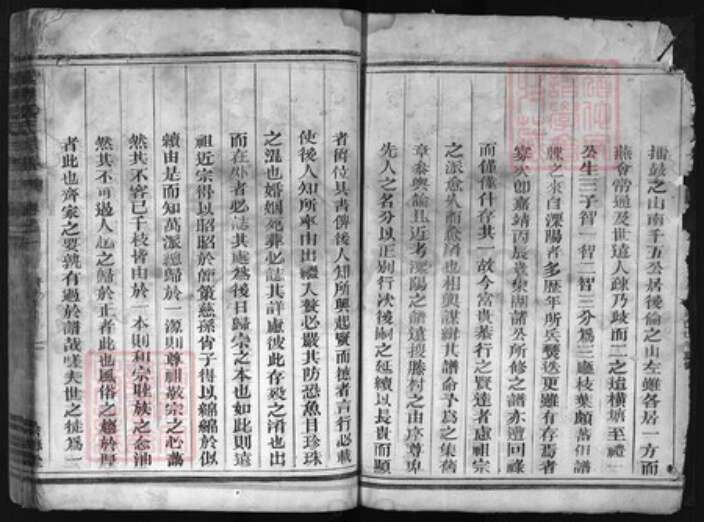 擂鼓之山南千五公居後倫之山左雖各居一方而
燕會常通及世遠人疎乃歧而二之遠橫塘至禮一
公生三子智一智二智三分爲三廳枝葉頗蕃但譜
牒之來自溧陽者多歷年所兵燹迭更雖有存焉者
寡矣卽嘉靖丙辰袁東湖諸公所修之譜亦遭回祿
而僅僅什存其一故今富貴恭行之賢達者慮祖宗
之派愈久而愈淆也相與謀緝其譜俞予爲之集舊
章參輿論且近考溧陽之譜遠搜勝村之由序尊卑
先人之名分以正别行決後嗣之延續以長貴而顯
者爵位具書俾後人知所興起賢而德者言行必載
使後人知所率由出繼入贅必嚴其防恐魚目珍珠
之混也婚姻死葬必誌其詳慮彼此存歿之淆也出
而在外者必誌其處爲後日歸宗之本也如此則遠
祖近宗得以昭昭於簡策慈孫肖子得以綿綿於似
續由是而知萬派總歸於一源則尊祖敬宗之心藹
然其不容已千枝皆由於一本則和宗睦族之念油
然其不可遏人心之歸於正者此也風俗之趨於厚
者此也齊家之要孰有過於譜哉嗟夫世之徒爲一